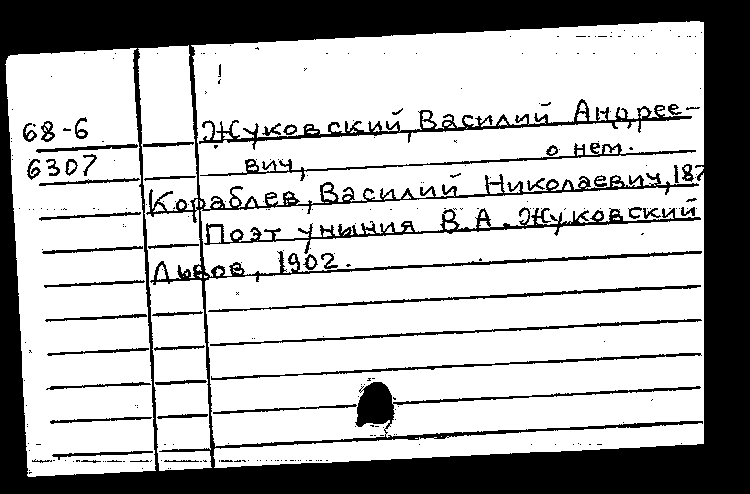 68-6 Жуковский, Василий Андрее-
6307 вич, о нем.
Кораблев, Василий Николаевич, 187
Поэт уныния В.А. Жуковский
Львов, 1902.